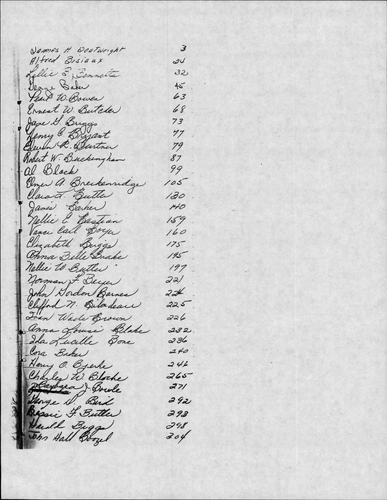 James H Boatwright 3
Alfred Bisiaux 24
Lellie E. Bennett 32
Deane Baber 45
Pearl W. Bowen 63
Ernest W. Butcher 68
Jane G. Briggs 73
Henry E. Bryant 77
R. Burtner 79
Robert W. Buckingham 87
Al Block 99
Elmer A. Breckenridge 105
Clara F. Butler 130
Janie Baker 140
Nellie E. Bastian 159
Vance Carl Boyer 160
Elizabeth Briggs 175
Anna Belle Brake 195
Nellie W. Butler 197
Norman F. Beyer 221
John Gordon Barnes 224
Clifford N. Bilodeau 225
Ivan Wade Brown 226
Anna Louise Blake 232
Ida Lucille Bone 236
Cora Baker 240
Henry O. 246
Charles W. Blocke 265
J. 271
George W. Bird 292
Bessie F. Butler 293
Harold Buggs 298
Hall 304